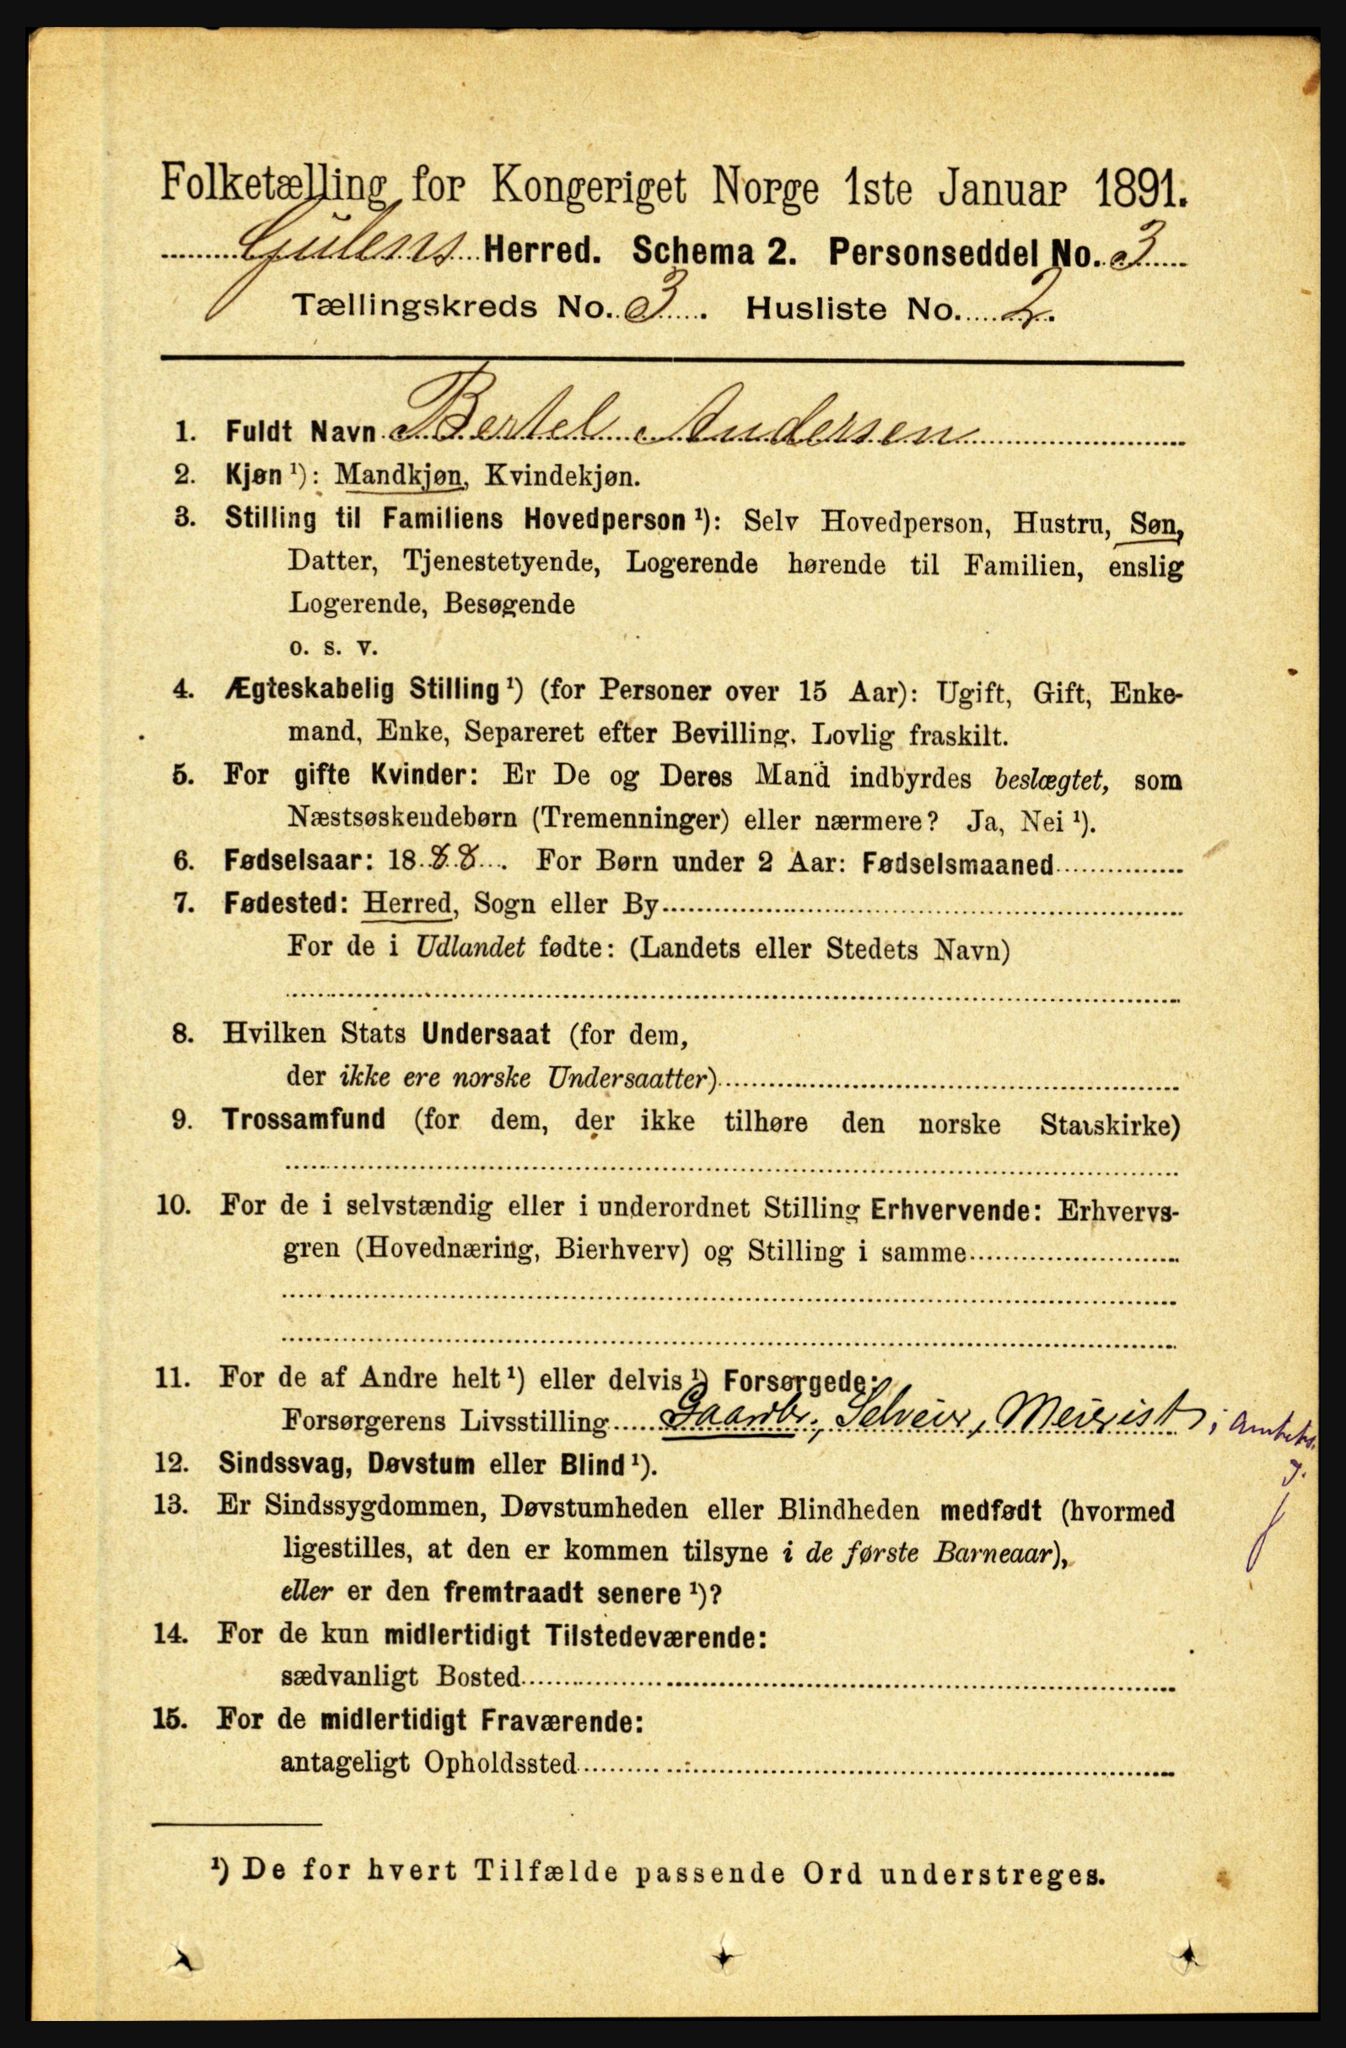 Folketælling for Kongeriget Norge 1ste Januar 1891.
Gulens Herred. Schema 2. Personseddel No. 3
Tællingskreds No. 3. Husliste No. 2.
1. Fuldt Navn Bertel Andersen
2. Kjøn ¹): Mandkjøn, Kvindekjøn.
3. Stilling til Familiens Hovedperson ¹): Selv Hovedperson, Hustru, Søn,
Datter, Tjenestetyende, Logerende hørende til Familien, enslig
Logerende, Besøgende
o. s. v.
4. Ægteskabelig Stilling ¹) (for Personer over 15 Aar): Ugift, Gift, Enke-
mand, Enke, Separeret efter Bevilling. Lovlig fraskilt.
5. For gifte Kvinder: Er De og Deres Mand indbyrdes beslægtet, som
Næstsøskendebørn (Tremenninger) eller nærmere? Ja, Nei ¹).
6. Fødselsaar: 1888. For Børn under 2 Aar: Fødselsmaaned
7. Fødested: Herred, Sogn eller By
For de i Udlandet fødte: (Landets eller Stedets Navn)
8. Hvilken Stats Undersaat (for dem,
der ikke ere norske Undersaatter)
9. Trossamfund (for dem, der ikke tilhøre den norske Statskirke)
10. For de i selvstændig eller i underordnet Stilling Erhvervende: Erhvervs-
gren (Hovednæring, Bierhverv) og Stilling i samme
11. For de af Andre helt ¹) eller delvis ¹) Forsørgede:
Forsørgerens Livsstilling Gaardbr., Selveier, Meierist
12. Sindssvag, Døvstum eller Blind ¹).
13. Er Sindssygdommen, Døvstumheden eller Blindheden medfødt (hvormed
ligestilles, at den er kommen tilsyne i de første Barneaar),
eller er den fremtraadt senere ¹)?
14. For de kun midlertidigt Tilstedeværende:
sædvanligt Bosted
15. For de midlertidigt Fraværende:
antageligt Opholdssted
¹) De for hvert Tilfælde passende Ord understreges.